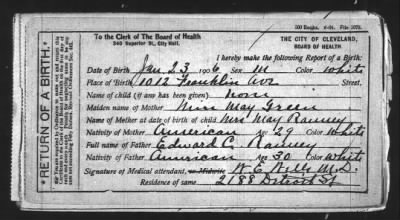 500 Books. 4-04. File 1075.
To the Clerk of The Board of Health
340 Superior St., City Hall.
THE CITY OF CLEVELAND,
BOARD OF HEALTH.
RETURN OF A BIRTH.
I hereby make the following Report of a Birth:
Date of Birth Jan 23 1906 Sex M Color White
Place of Birth 1012 Franklin Ave Street.
Name of child (if one has been given). None
Maiden name of Mother Miss May Green
Name of Mother at date of birth of child Mrs May Ranney
Nativity of Mother American Age 29 Color White
Full name of Father Edward C. Ranney
Nativity of Father American Age 30 Color White
Signature of Medical attendant, or Midwife W. E. Wells M.D.
Residence of same 2188 Detroit St